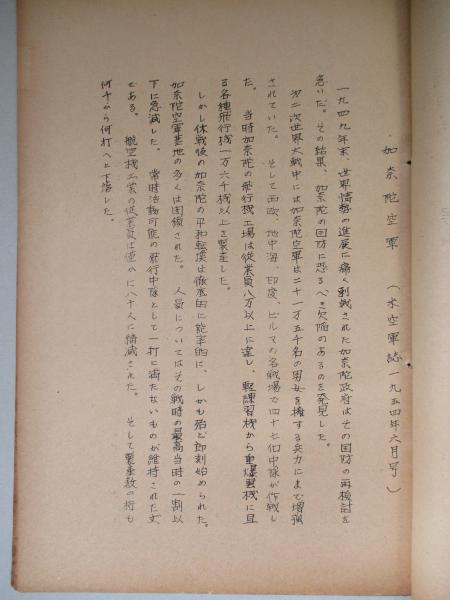 加奈陀空軍　（米空軍誌一九五四年六月号）
一九四九年末、世界情勢の進展に痛く刺戟された加奈陀政府はその国防の再検討を
急いだ。その結果、加奈陀の国防に恐るべき欠陥のあるのを発見した。
第二次世界大戦中には加奈陀空軍は二十一万五千名の男女を擁する兵力にまで増強
されていた。そして西欧、地中海、印度、ビルマの各戦場で四十七ヶ中隊が作戦し
た。当時加奈陀の飛行機工場は従業員八万以上に達し、軽練習機から重爆撃機に亘
る各種飛行機一万六千機以上を製産した。
しかし休戦後の加奈陀の平和転換は徹底的に能率的に、しかも殆ど即刻始められた。
加奈陀空軍基地の多くは閉鎖された。人員についてはその戦時の最高当時の一割以
下に急減した。常時活動可能の飛行中隊として一打に満たないものが維持された丈
である。航空機工業の従業員は僅かに八千人に縮減された。そして製産数の桁も
何千から何打へと下落した。